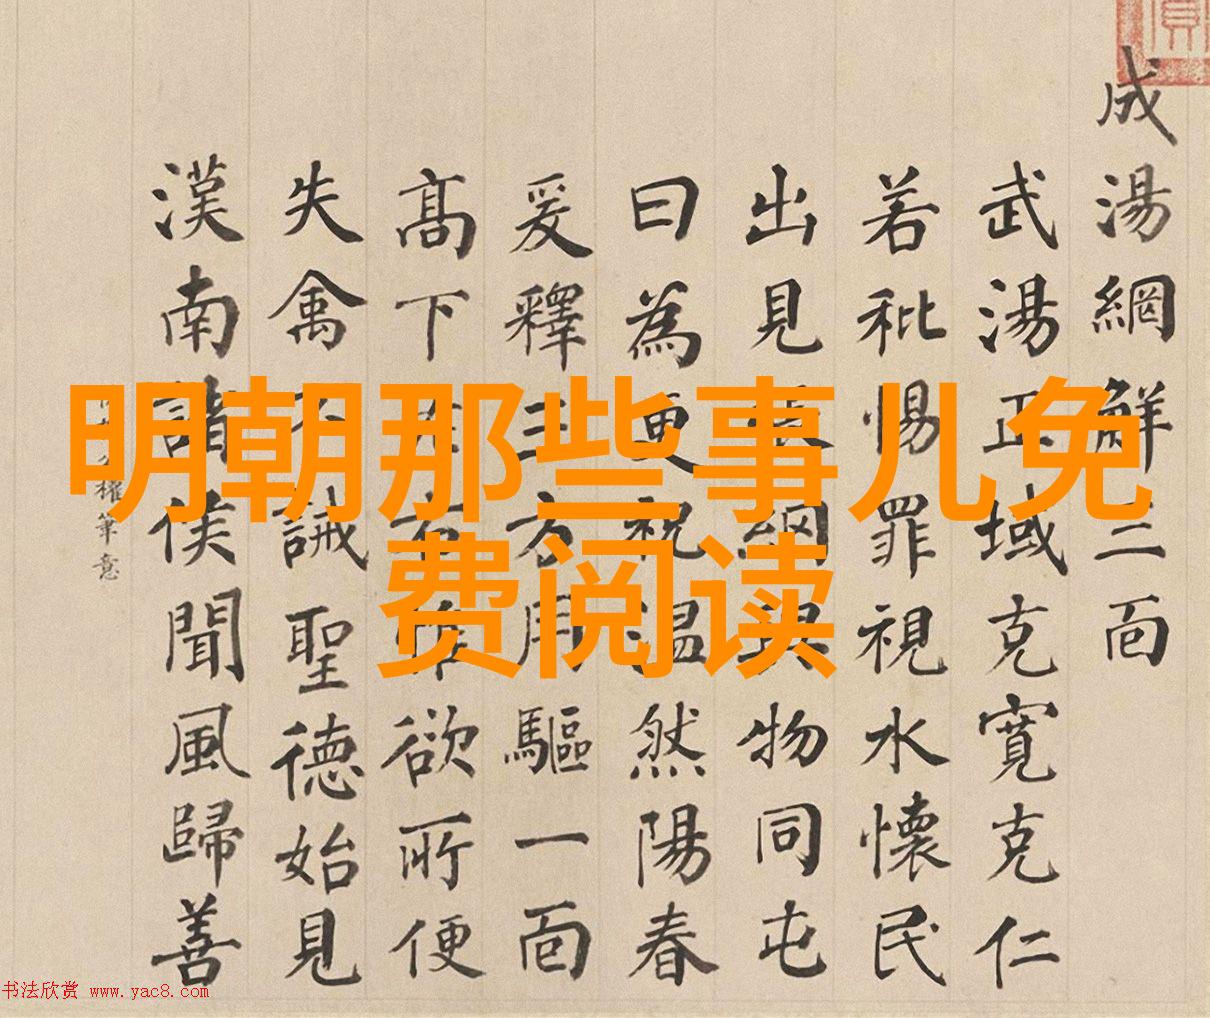 明朝那些事儿免
费阅读
成湯網觧三面
武湯正域克寬克仁
若秕惕罪視水懷民
出見網與物同屯
曰為更祝溫然陽春
爰釋三方用驅一面
髙下左右唯欲所便
失禽不誡聖德始見
漢南諸侯聞風歸善
權筆意
书法欣赏 www.yac8.com